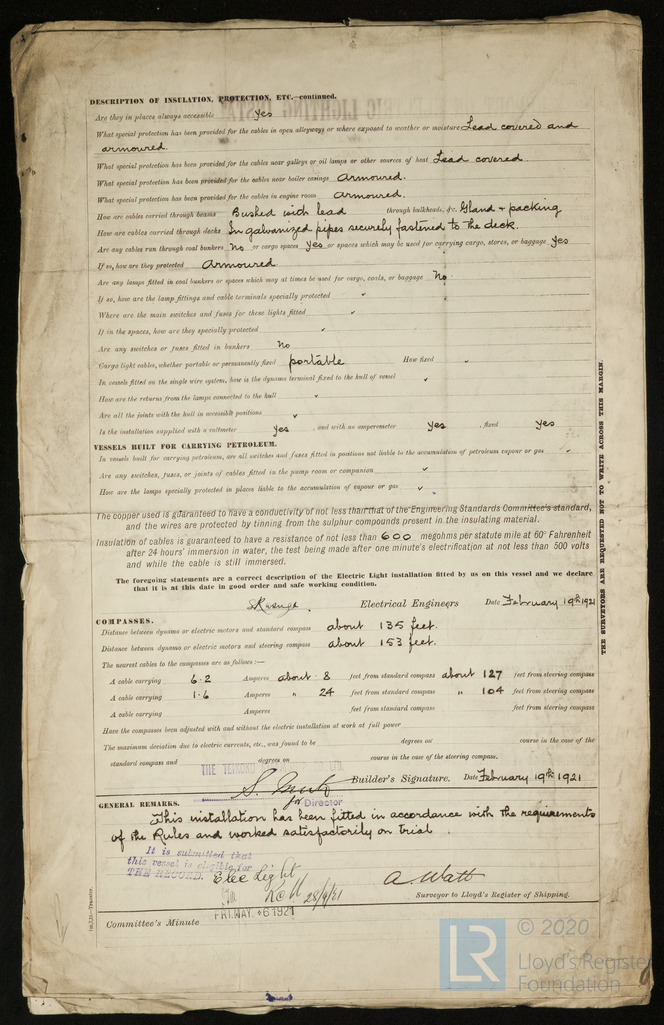 DESCRIPTION OF INSULATION, PROTECTION, ETC.—continued.
Are they in places always accessible yes
What special protection has been provided for the cables in open alleyways or where exposed to weather or moisture Lead covered and
armoured.
What special protection has been provided for the cables near galleys or oil lamps or other sources of heat Lead covered.
What special protection has been provided for the cables near boiler casings armoured.
What special protection has been provided for the cables in engine room armoured.
How are cables carried through beams Bushed with lead through bulkheads, &c. Gland + packing
How are cables carried through decks In galvanized pipes securely fastened to the deck.
Are any cables run through coal bunkers No or cargo spaces yes or spaces which may be used for carrying cargo, stores, or baggage yes
If so, how are they protected armoured
Are any lamps fitted in coal bunkers or spaces which may at times be used for cargo, coals, or baggage No
If so, how are the lamp fittings and cable terminals specially protected ✓
Where are the main switches and fuses for these lights fitted ✓
If in the spaces, how are they specially protected ✓
Are any switches or fuses fitted in bunkers No
Cargo light cables, whether portable or permanently fixed portable How fixed ✓
In vessels fitted on the single wire system, how is the dynamo terminal fixed to the hull of vessel ✓
How are the returns from the lamps connected to the hull ✓
Are all the joints with the hull in accessible positions ✓
Is the installation supplied with a voltmeter yes , and with an amperemeter yes , fixed yes
VESSELS BUILT FOR CARRYING PETROLEUM.
In vessels built for carrying petroleum, are all switches and fuses fitted in positions not liable to the accumulation of petroleum vapour or gas ✓
Are any switches, fuses, or joints of cables fitted in the pump room or companion ✓
How are the lamps specially protected in places liable to the accumulation of vapour or gas ✓
The copper used is guaranteed to have a conductivity of not less than that of the Engineering Standards Committee's standard,
and the wires are protected by tinning from the sulphur compounds present in the insulating material.
Insulation of cables is guaranteed to have a resistance of not less than 600 megohms per statute mile at 60° Fahrenheit
after 24 hours' immersion in water, the test being made after one minute's electrification at not less than 500 volts
and while the cable is still immersed.
The foregoing statements are a correct description of the Electric Light installation fitted by us on this vessel and we declare
that it is at this date in good order and safe working condition.
Electrical Engineers Date February 19th 1921
COMPASSES.
Distance between dynamo or electric motors and standard compass about 135 feet.
Distance between dynamo or electric motors and steering compass about 153 feet.
The nearest cables to the compasses are as follows:—
A cable carrying 6.2 Amperes about 8 feet from standard compass about 127 feet from steering compass
A cable carrying 1.6 Amperes " 24 feet from standard compass " 104 feet from steering compass
A cable carrying Amperes feet from standard compass feet from steering compass
Have the compasses been adjusted with and without the electric installation at work at full power
The maximum deviation due to electric currents, etc., was found to be degrees on course in the case of the
standard compass and degrees on course in the case of the steering compass.
Builder's Signature. Date February 19th 1921
for Director
GENERAL REMARKS.
This installation has been fitted in accordance with the requirements
of the Rules and worked satisfactorily on trial.
It is submitted that
this vessel is eligible for
THE RECORD. Elec Light
FRI. MAY. 6 1921
A. Watt
Surveyor to Lloyd's Register of Shipping.
Committee's Minute
THE SURVEYORS ARE REQUESTED NOT TO WRITE ACROSS THIS MARGIN.
LR
© 2020
Lloyd's Register
Foundation